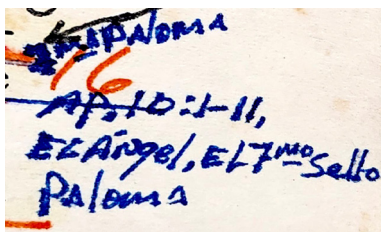 1ma Paloma
16
AP. 10:1-11,
EL Ángel, EL 7mo Sello
Paloma